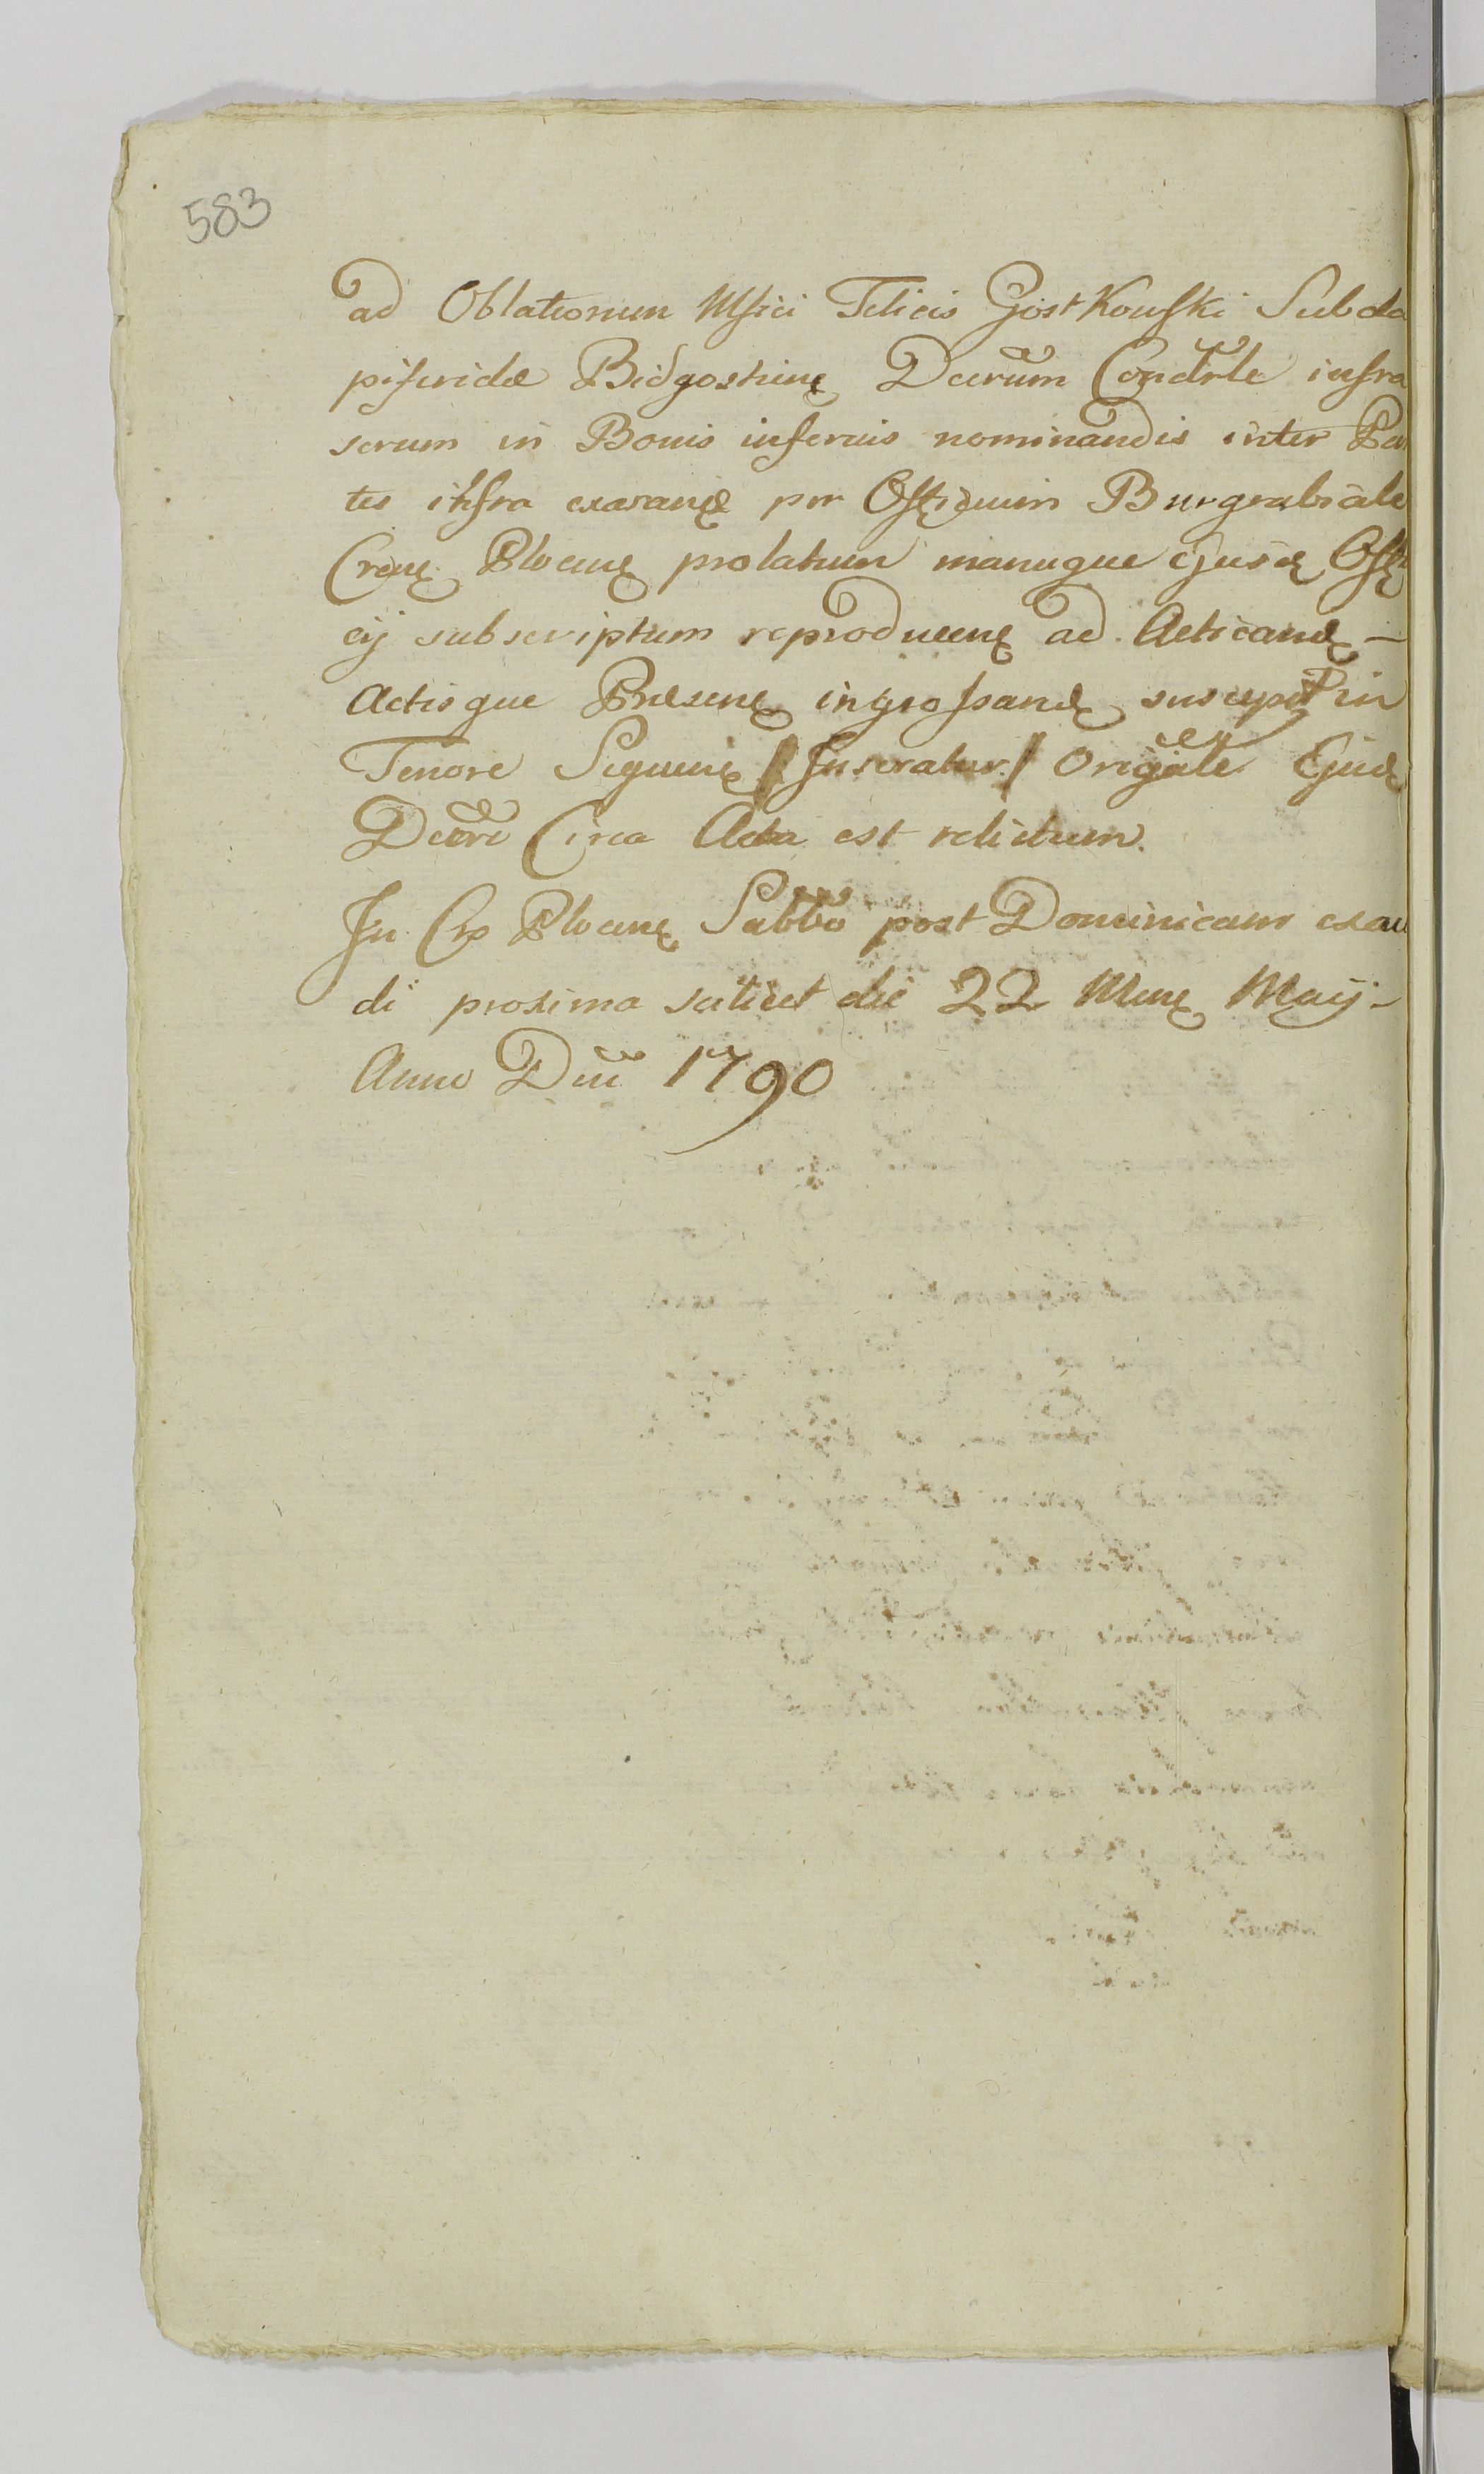 583
ad Oblationem Mfici Felicis Gostkowski Subda
piferidæ Bidgostien Decrum Condrle infra
serum in Bonis inferius nominandis inter Par
tes infra exarand per Officium Burgrabiale
Crense Plocen prolatum manuque ejusd Offi
cij subscriptum reproducen ad Acticand –
Actisque Præsen ingrossand suscepit in
Tenore Sequen /Inseratur./ Origale Ejusd
Decre Circa Acta est relictum.
In Cro Plocen Sabbo post Dominicam exau
di proxima scilicet die 22 Mens Maij –
Anno Dni 1790